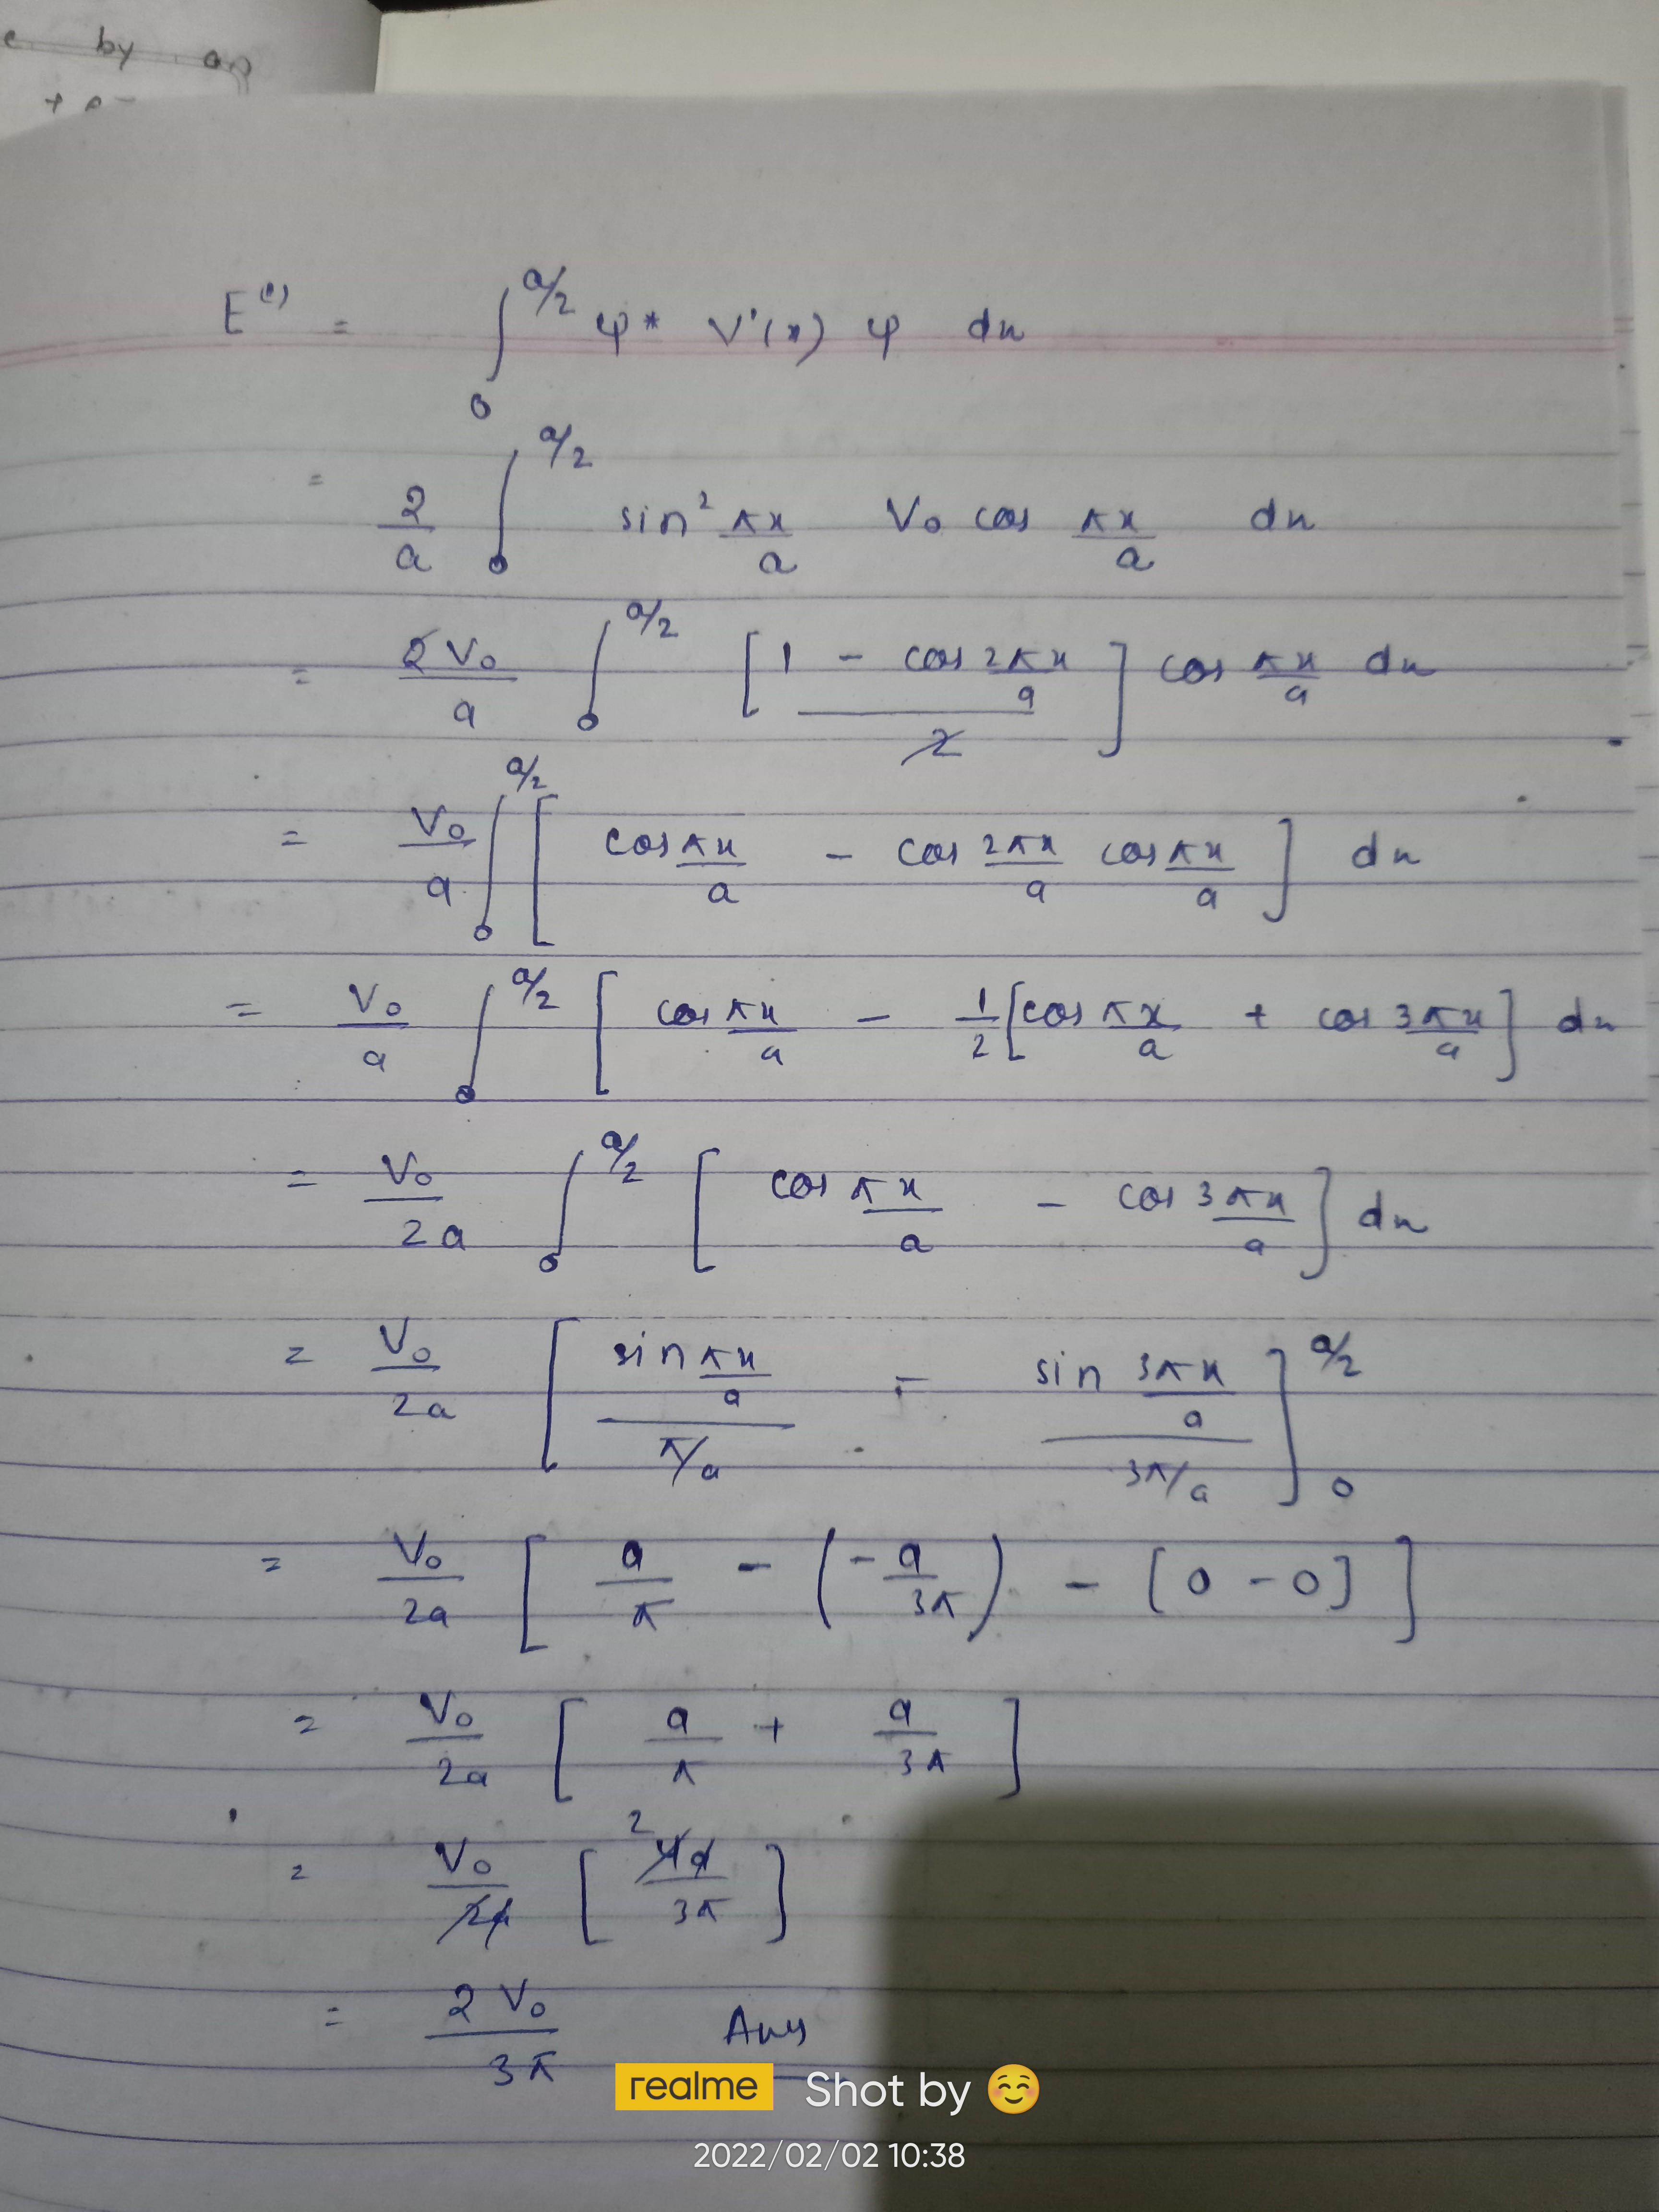 e by ap
E⁽¹⁾ = ∫₀^{a/2} ψ* V'(x) ψ dx
= 2/a ∫₀^{a/2} sin² πx/a V₀ cos πx/a dx
= 2V₀/a ∫₀^{a/2} [1 - cos 2πx/a / 2] cos πx/a dx
= V₀/a ∫₀^{a/2} [cos πx/a - cos 2πx/a cos πx/a] dx
= V₀/a ∫₀^{a/2} [cos πx/a - 1/2 [cos πx/a + cos 3πx/a] dx
= V₀/2a ∫₀^{a/2} [cos πx/a - cos 3πx/a] dx
= V₀/2a [sin πx/a / π/a - sin 3πx/a / 3π/a]₀^{a/2}
= V₀/2a [a/π - (-a/3π) - [0 - 0]]
= V₀/2a [a/π + a/3π]
= V₀/2a [2 4a/3π]
= 2V₀/3π Ans
realme Shot by 😊
2022/02/02 10:38